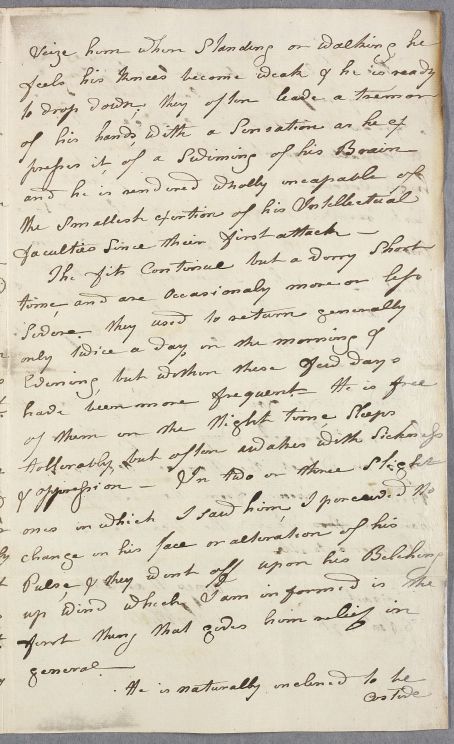 Seize him when Standing or Walking he
feels his Knees become weak & he is ready
to drop down, they often leave a tremor
of his hands, with a Sensation as he ex
presses it, of a Swiming of his Brain
and he is rendered wholly incapable of
the Smallest exertion of his Intellectual
faculties Since their first attack —
The fits Continue but a very Short
time, and are Occasionaly more or less
Severe they used to return generally
only twice a day in the morning &
Evening, but within these few days
have been more frequent. He is free
of them in the Night time, Sleeps
tollerably, but often awakes with Sickness
& oppression — In two or three Slight
ones in which I Saw him, I perceived No
change in his face or alteration of his
Pulse, & they went off upon his Belching
up wind which, I am informed is the
first thing that gives him relief in
general —
He is naturally inclined to be
Costive